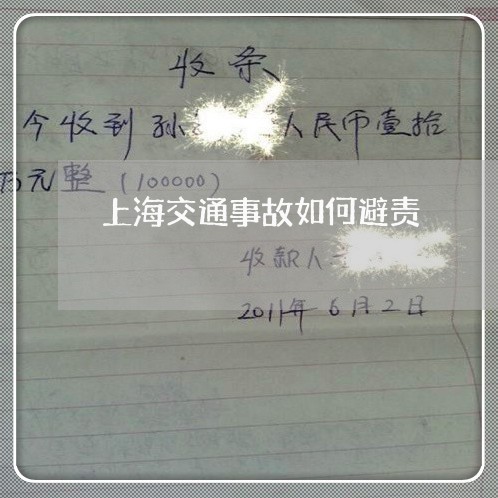 收条
今收到孙人民币壹拾
万元整(100000)
上海交通事故如何避责
收款人
2011年6月2日